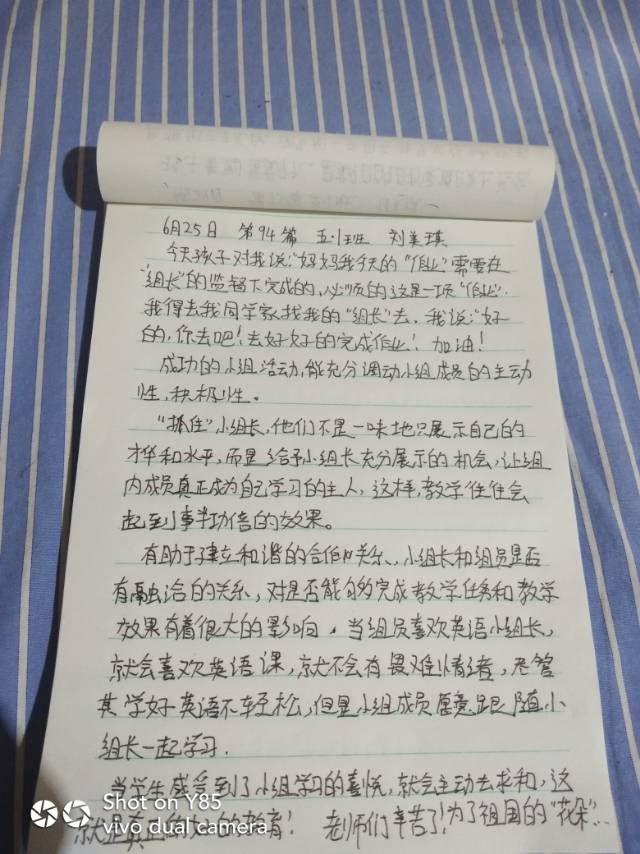 6月25日 第94篇 五1班 刘美琪
今天孩子对我说:"妈妈我今天的"作业"需要在
"组长"的监督下完成的,必须的这是一项"作业".
我得去我同学家找我的"组长"去.我说:"好
的,你去吧!去好好的完成作业!加油!
成功的小组活动,能充分调动小组成员的主动
性,积极性。
"抓住"小组长,他们不是一味地只展示自己的
才华和水平,而是给予小组长充分展示的机会,让组
内成员真正成为自己学习的主人,这样,教学往往会
起到事半功倍的效果。
有助于建立和谐的合作关系,小组长和组员是否
有融洽的关系,对是否能够完成教学任务和教学
效果有着很大的影响,当组员喜欢英语小组长,
就会喜欢英语课,就不会有畏难情绪,尽管
其学好英语不轻松,但是小组成员愿意跟随小
组长一起学习.
当学生感受到了小组学习的喜悦,就会主动去求和,这
就是真正的 的教育! 老师们辛苦了!为了祖国的"花朵"...
Shot on Y85
vivo dual camera